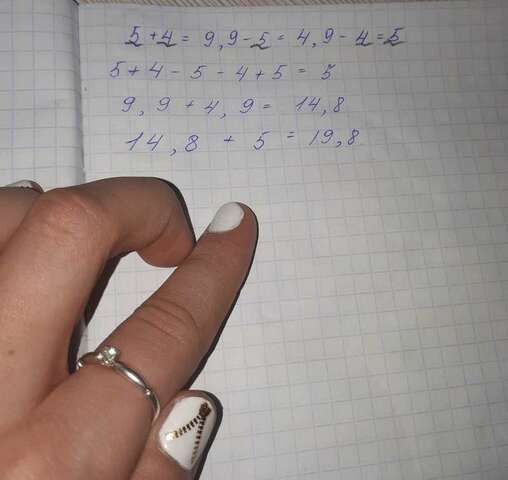 5 + 4 = 9, 9 - 5 = 4, 9 - 4 = 5
5 + 4 - 5 - 4 + 5 = 5
9, 9 + 4, 9 = 14,8
14,8 + 5 = 19,8